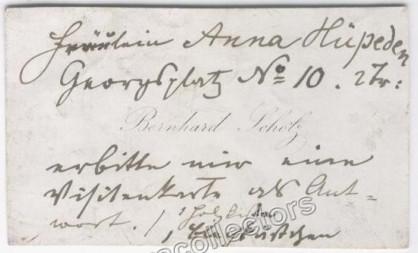 Fräulein Anna Hüpeden
Georgsplatz No 10. 2 Tr:
Bernhard Scholz
erbitte mir eine
Visitenkarte als Ant-
wort. /
collectors